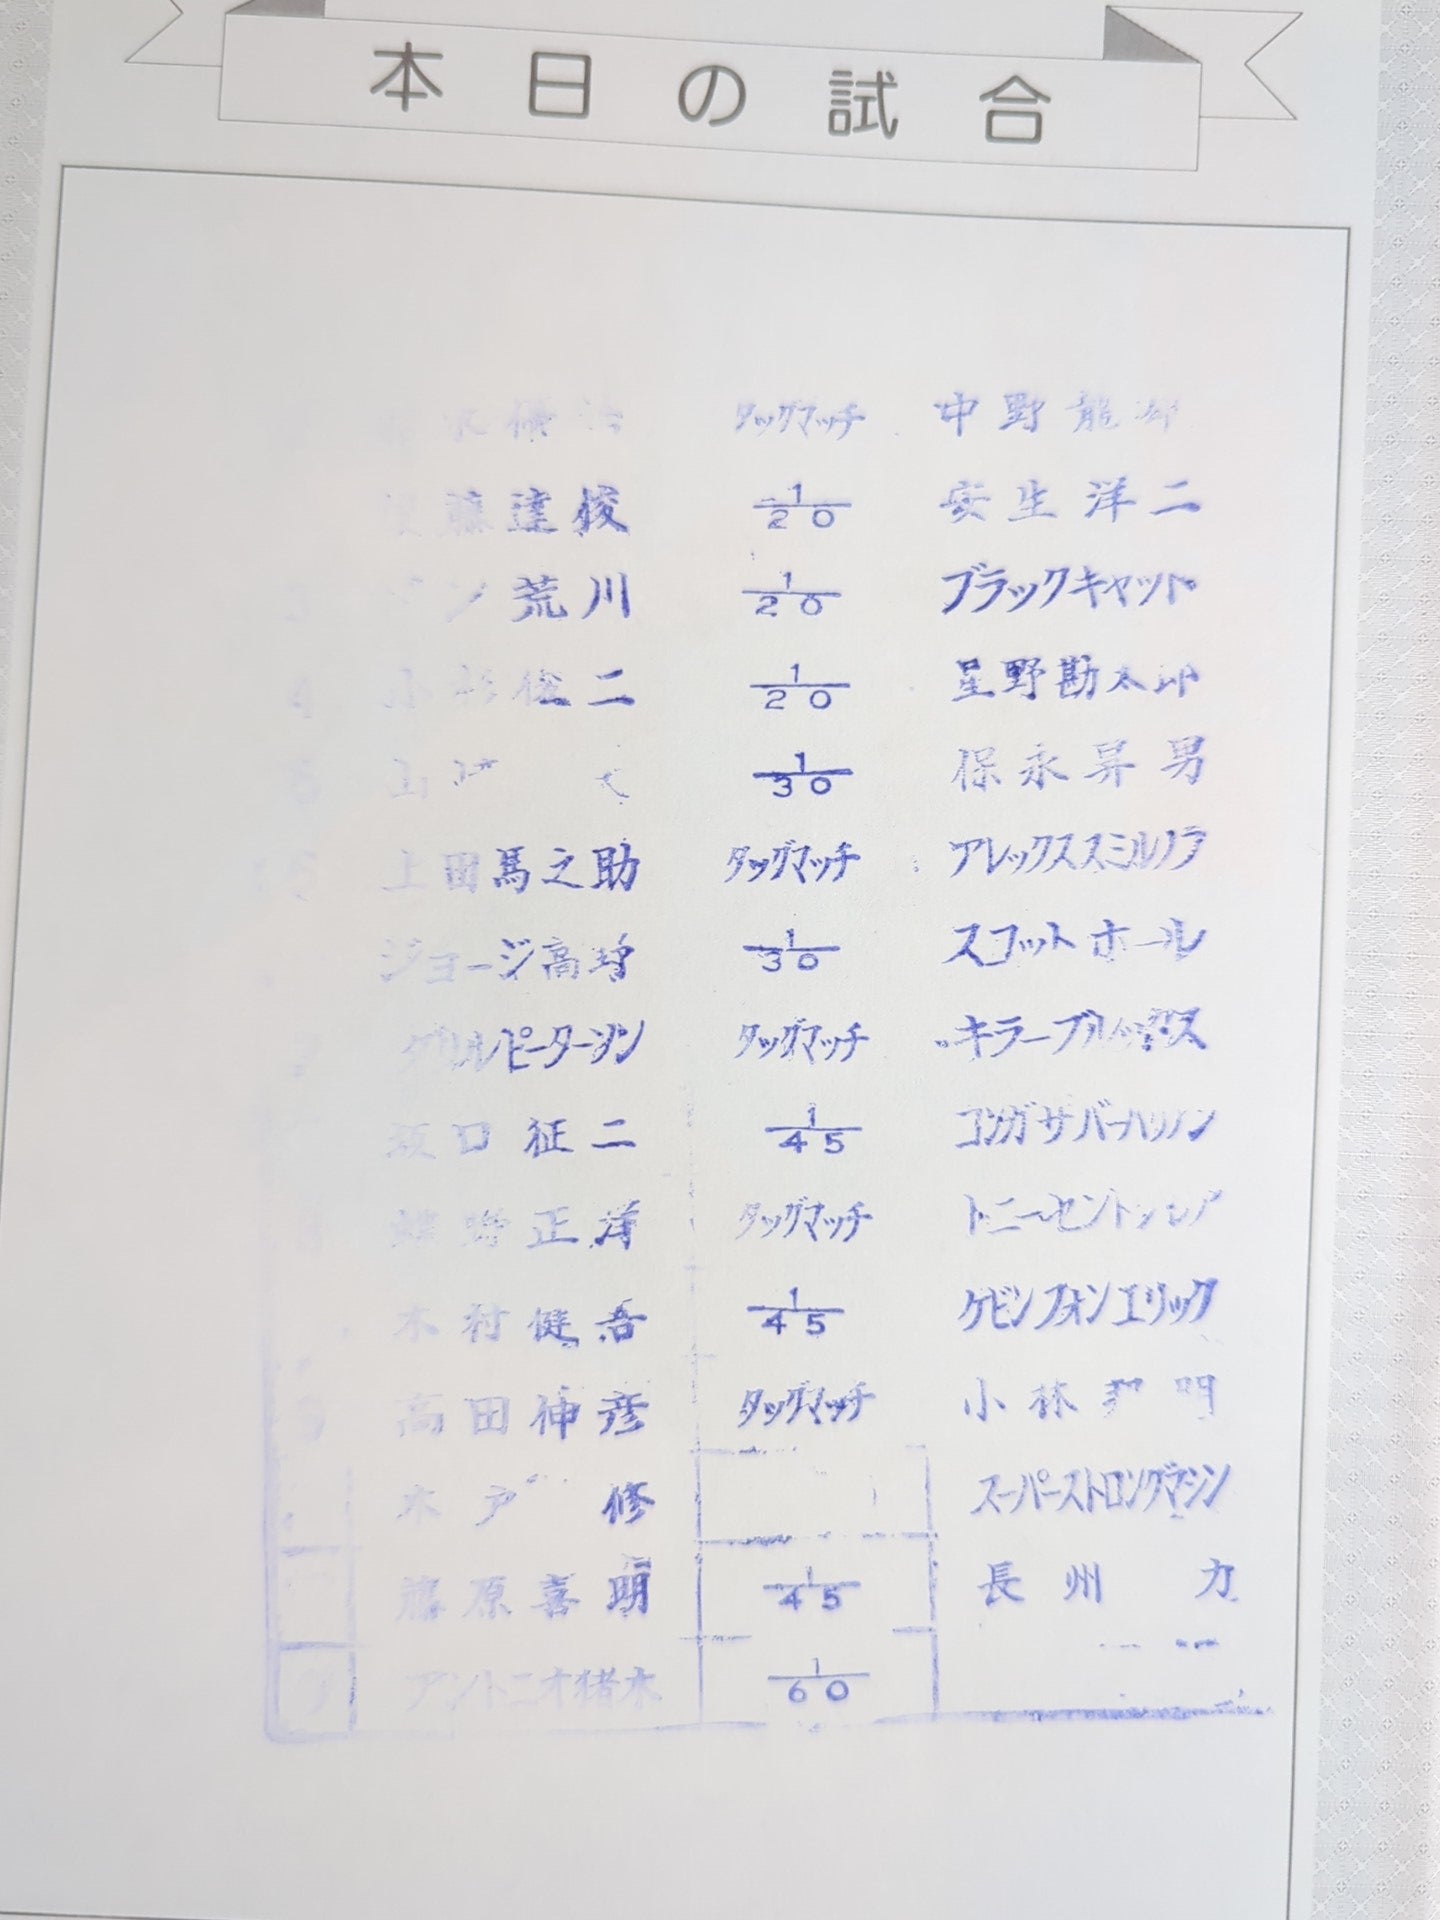 本日の試合
タッグマッチ 中野龍
達俊 1/20 安生洋二
ン荒川 1/20 ブラックキャット
4 小杉俊二 1/20 星野勘太郎
5 山 1/30 保永昇男
6 上田馬之助 タッグマッチ アレックススミルノフ
ジョージ高野 1/30 スコットホール
ピーターソン タッグマッチ キラーブルックス
坂口征二 1/45 コンガザバーバリアン
蝶野正洋 タッグマッチ トニーセントクレア
木村健吾 1/45 ケビンフォンエリック
高田伸彦 タッグマッチ 小林邦明
木戸修 スーパーストロングマシン
藤原喜明 1/45 長州力
アントニオ猪木 1/60